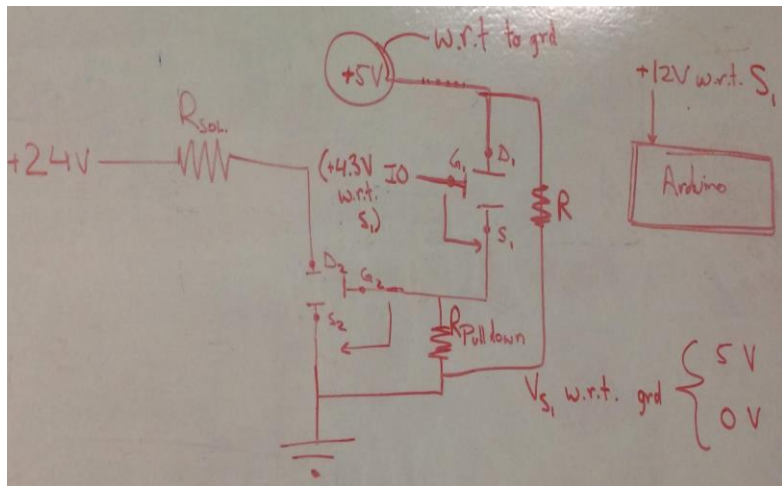 w.r.t to grd
+5V
+12V w.r.t. S₁
Arduino
R SOL.
+24V
(+4.3V
w.r.t.
S₁)
IO
G₁
D₁
S₁
R
D₂
G₂
S₂
R Pulldown
V S₁ w.r.t. grd { 5V
0V